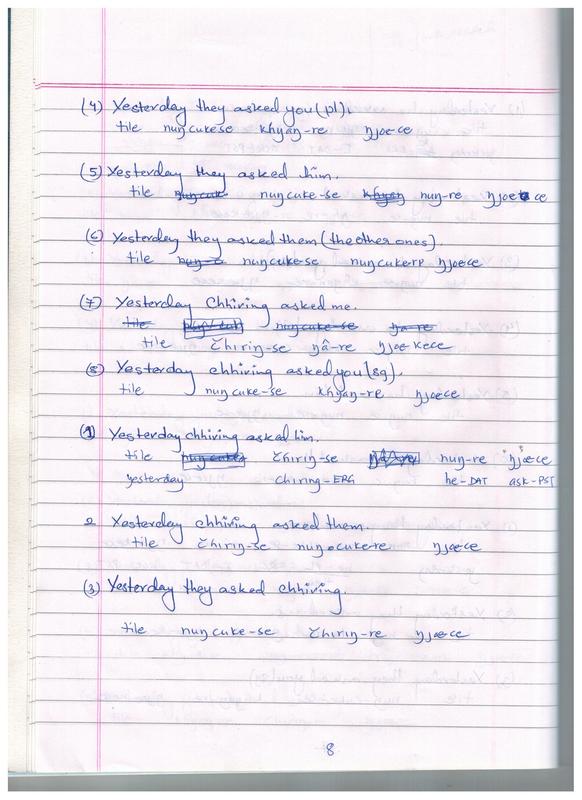 (4) Yesterday they asked you (pl).
tile nuŋcukese khyaŋ-re ŋjoece
(5) Yesterday they asked him.
tile nuŋcuke-se nuŋ-re ŋjoece
(6) Yesterday they asked them (the other ones).
tile nuŋcuke-se nuŋcukere ŋjoece
(7) Yesterday Chhiring asked me.
tile nuŋcuke-se ŋa-re
tile čhiriŋ-se ŋâ-re ŋjoekece
(8) Yesterday chhiring asked you (sg).
tile nuŋcuke-se khyaŋ-re ŋjoece
(1) Yesterday chhiring asked him.
tile čhiriŋ-se nuŋ-re ŋjœce
yesterday chiring-ERG he-DAT ask-PST
2. Yesterday chhiring asked them.
tile čhiriŋ-se nuŋocukere ŋjoece
(3) Yesterday they asked chhiring.
tile nuŋcuke-se čhiriŋ-re ŋjoece
8